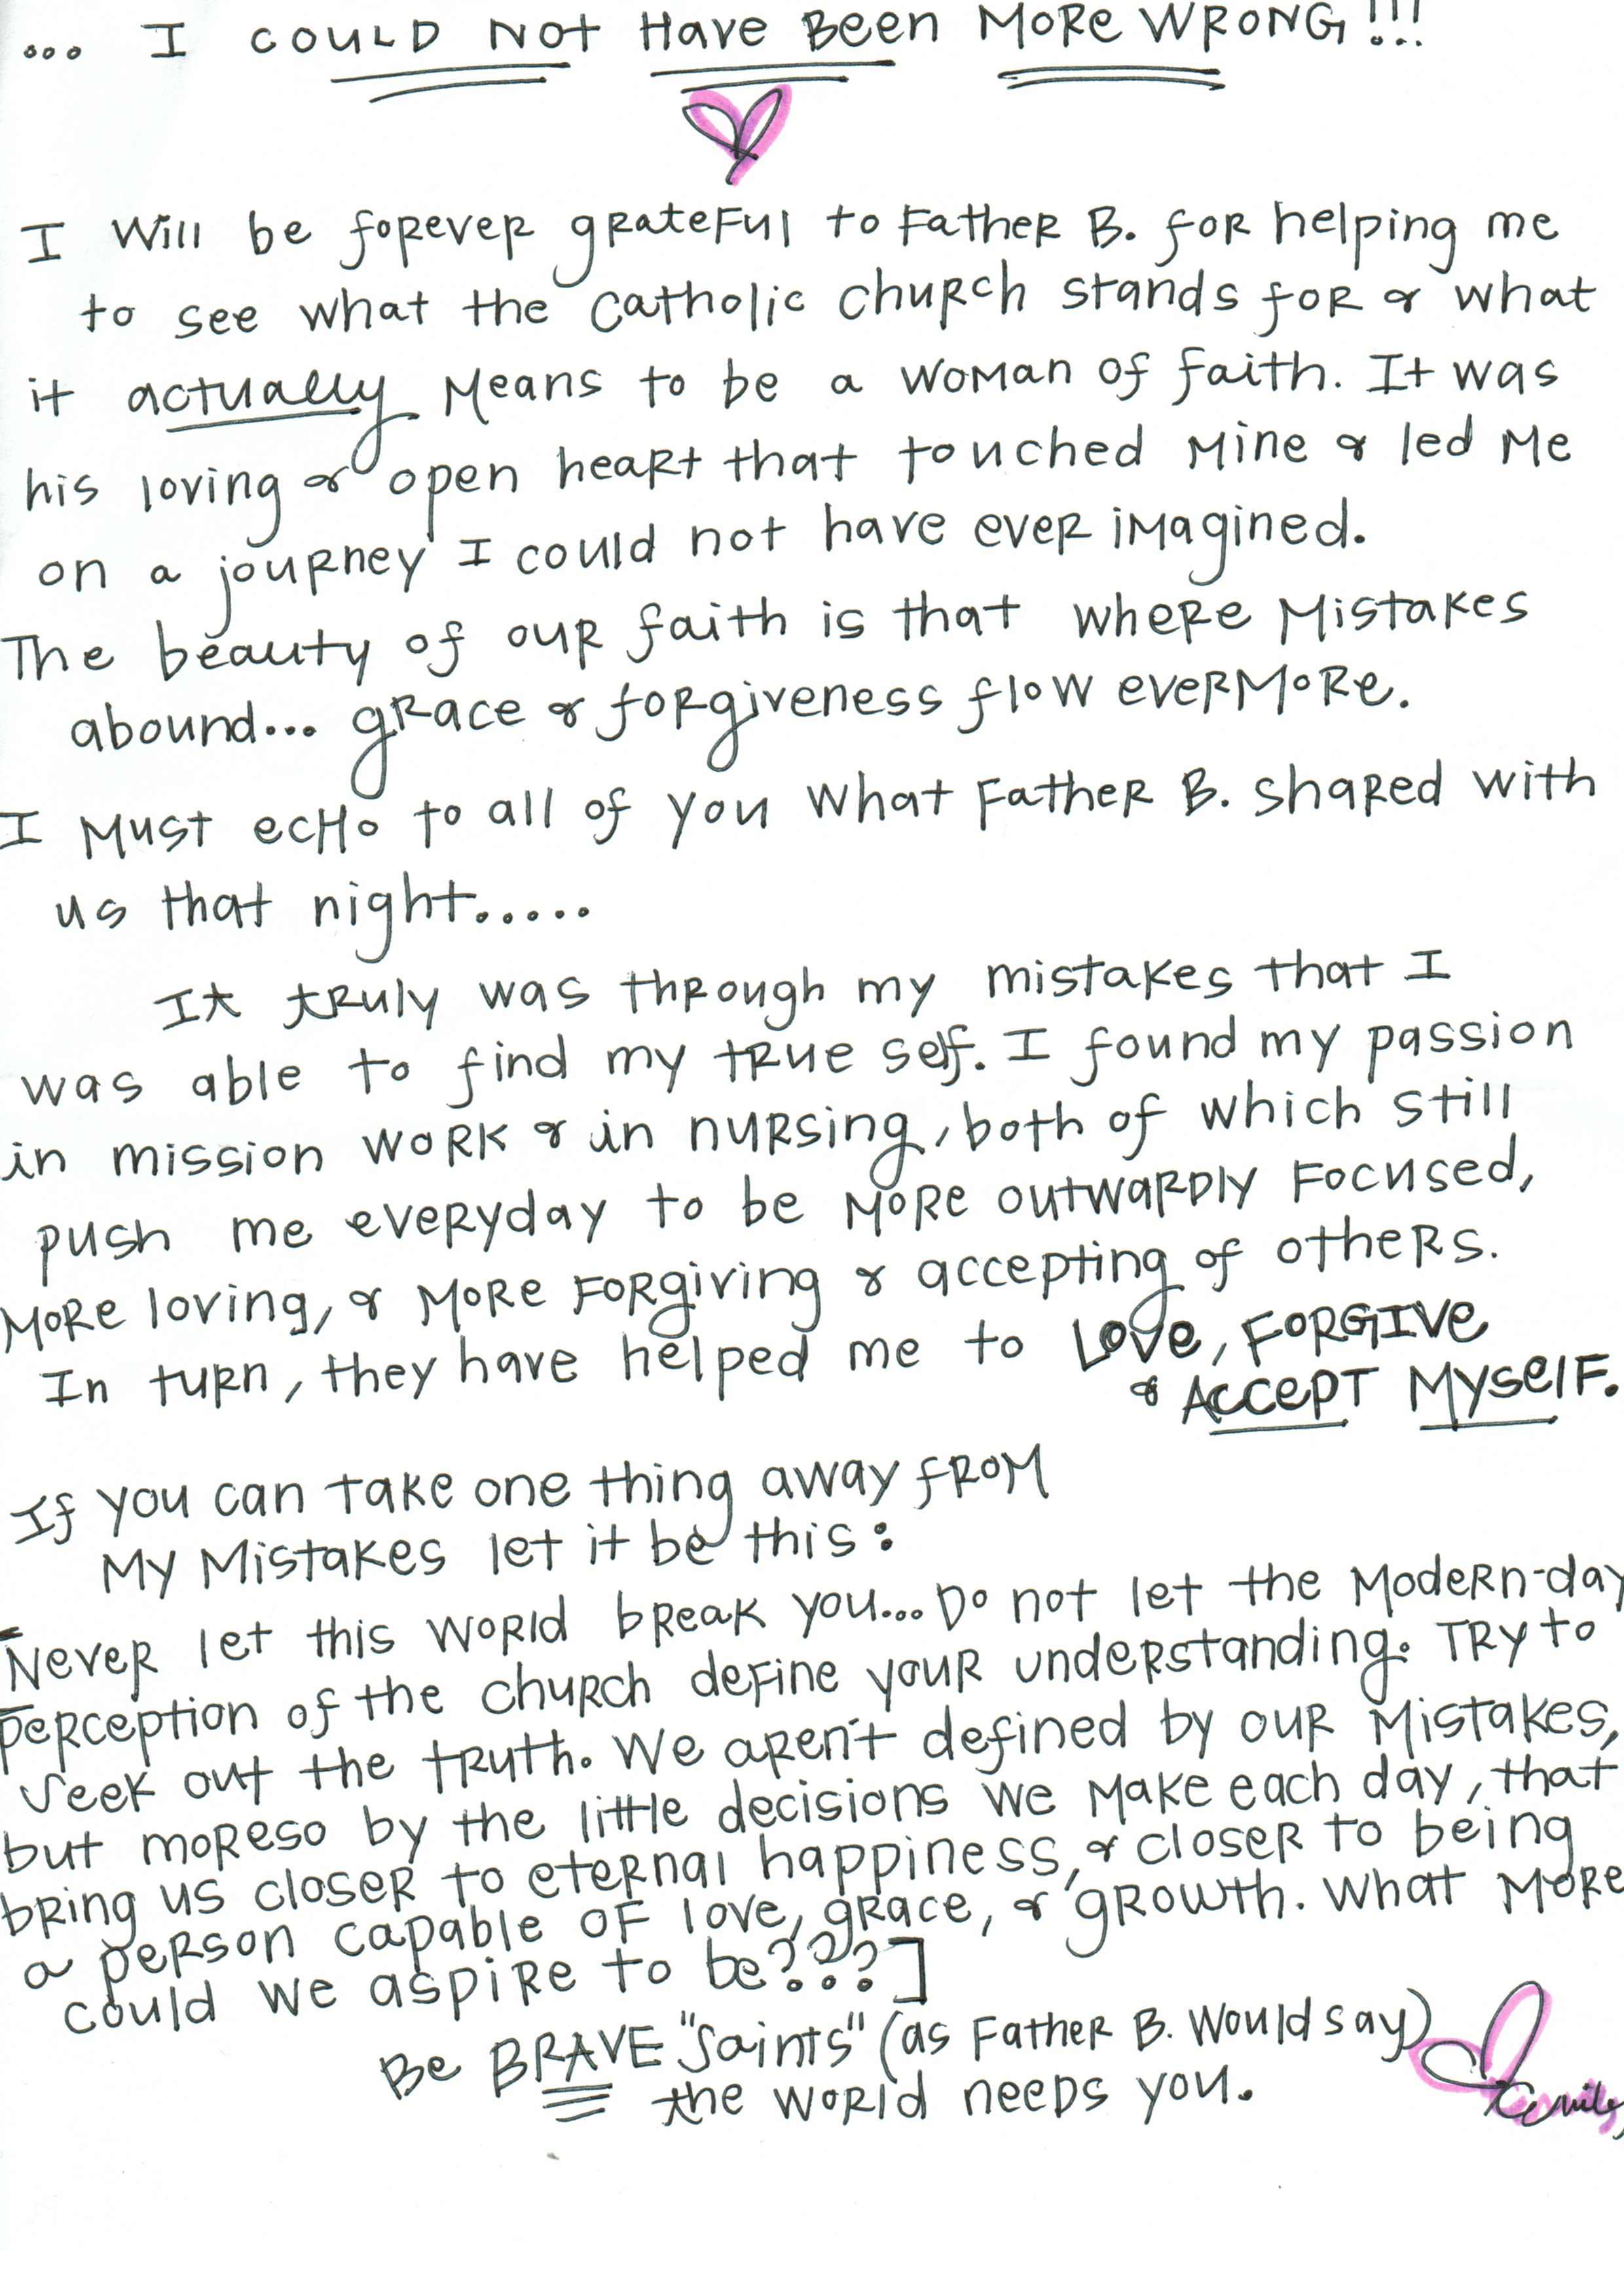 ... I COULD NOT HAVE BEEN MORE WRONG!!!
I will be forever grateful to Father B. for helping me
to see what the Catholic church stands for & what
it actually means to be a woman of faith. It was
his loving & open heart that touched mine & led me
on a journey I could not have ever imagined.
The beauty of our faith is that where mistakes
abound... grace & forgiveness flow evermore.
I must echo to all of you what Father B. shared with
us that night.....
It truly was through my mistakes that I
was able to find my true self. I found my passion
in mission work & in nursing, both of which still
push me everyday to be more outwardly focused,
more loving, & more forgiving & accepting of others.
In turn, they have helped me to LOVE, FORGIVE
& ACCEPT MYSELF.
If you can take one thing away from
my mistakes let it be this:
Never let this world break you... Do not let the modern-day
perception of the church define your understanding. Try to
seek out the truth. We aren't defined by our mistakes,
but moreso by the little decisions we make each day, that
bring us closer to eternal happiness, & closer to being
a person capable of love, grace, & growth. What more
could we aspire to be???]
Be BRAVE "Saints" (as Father B. would say)
the world needs you.
Emily